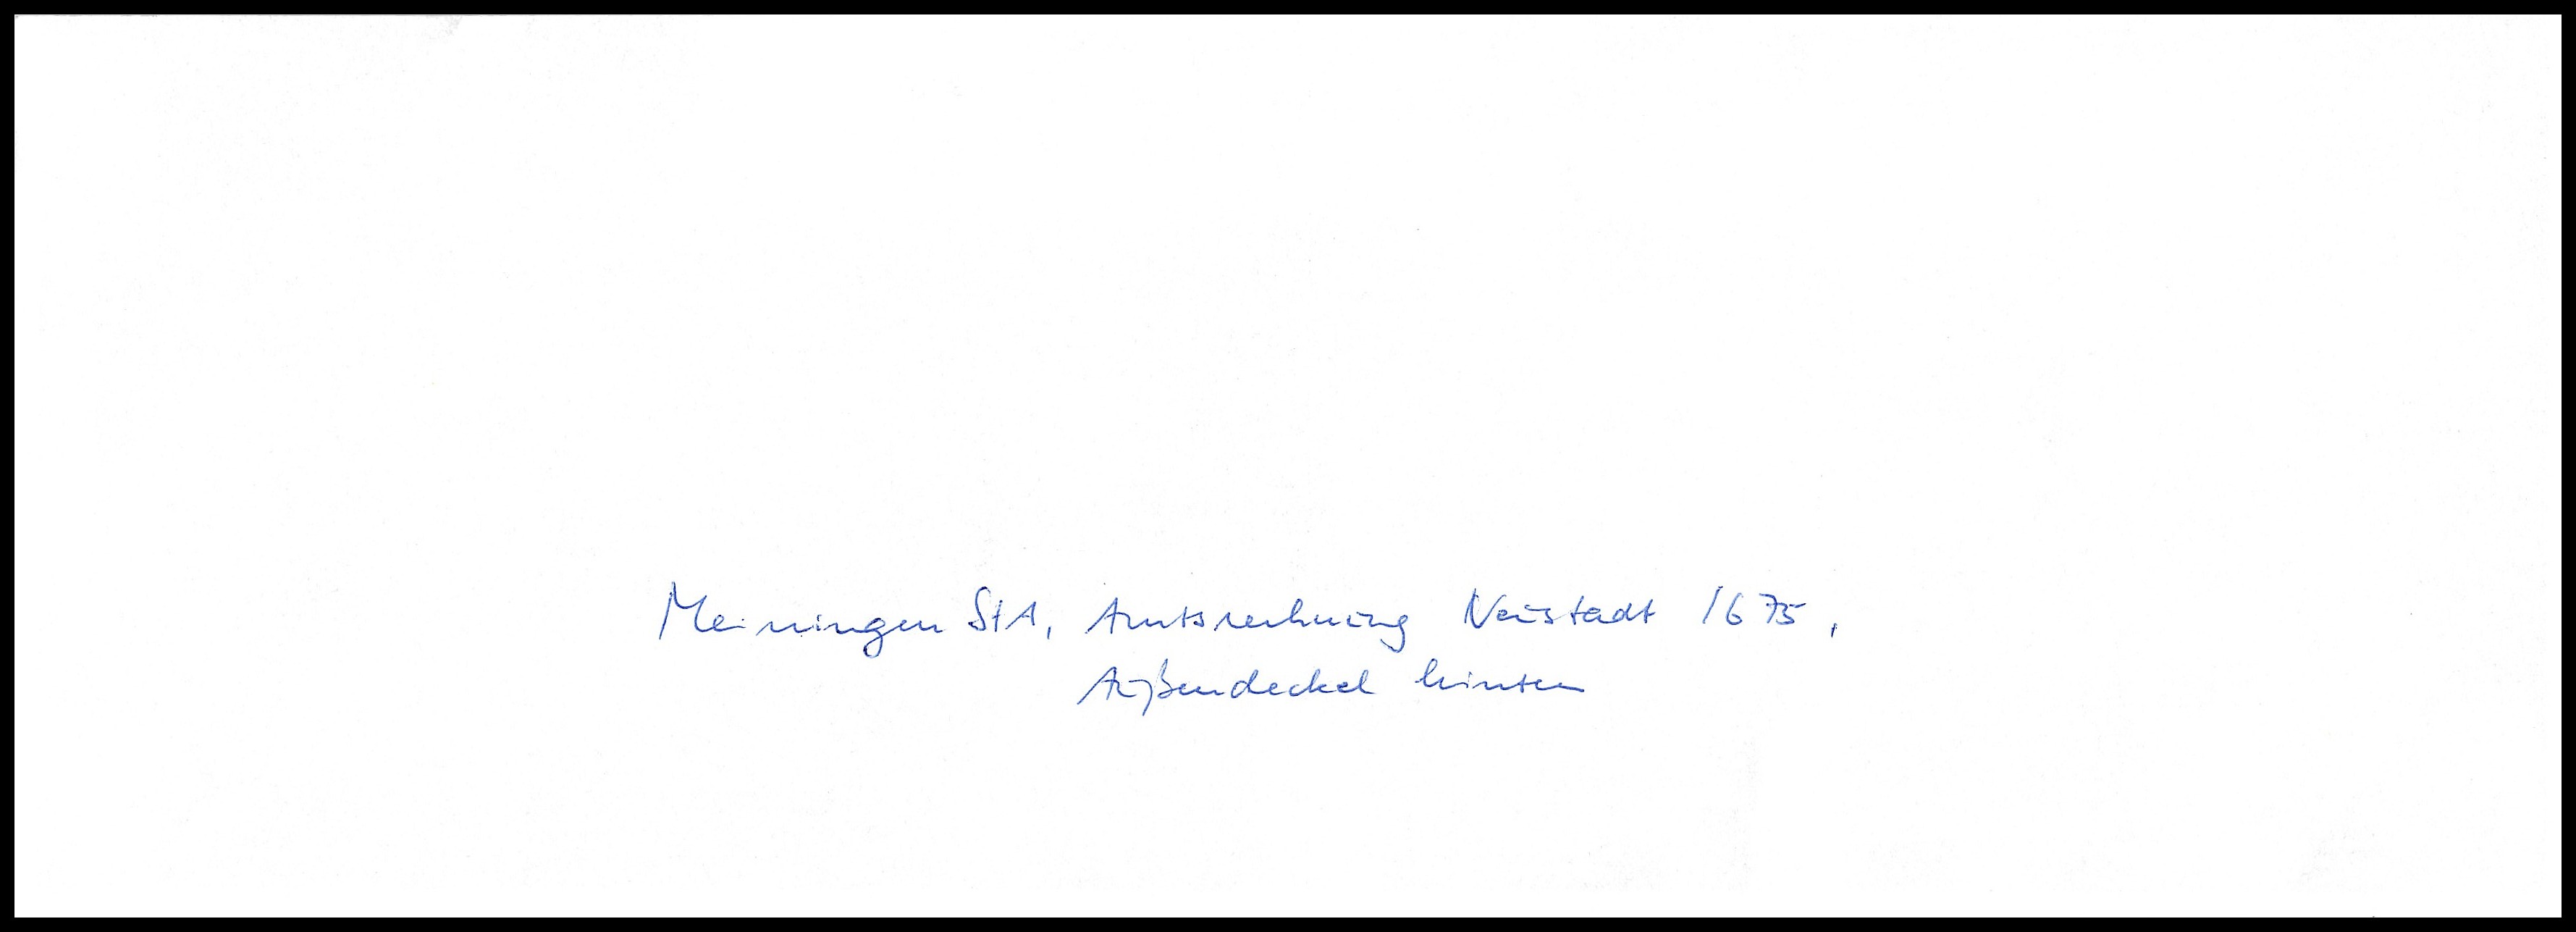 Meiningen StA, Amtsrechnung Neustadt 1675,
Außendeckel hinten